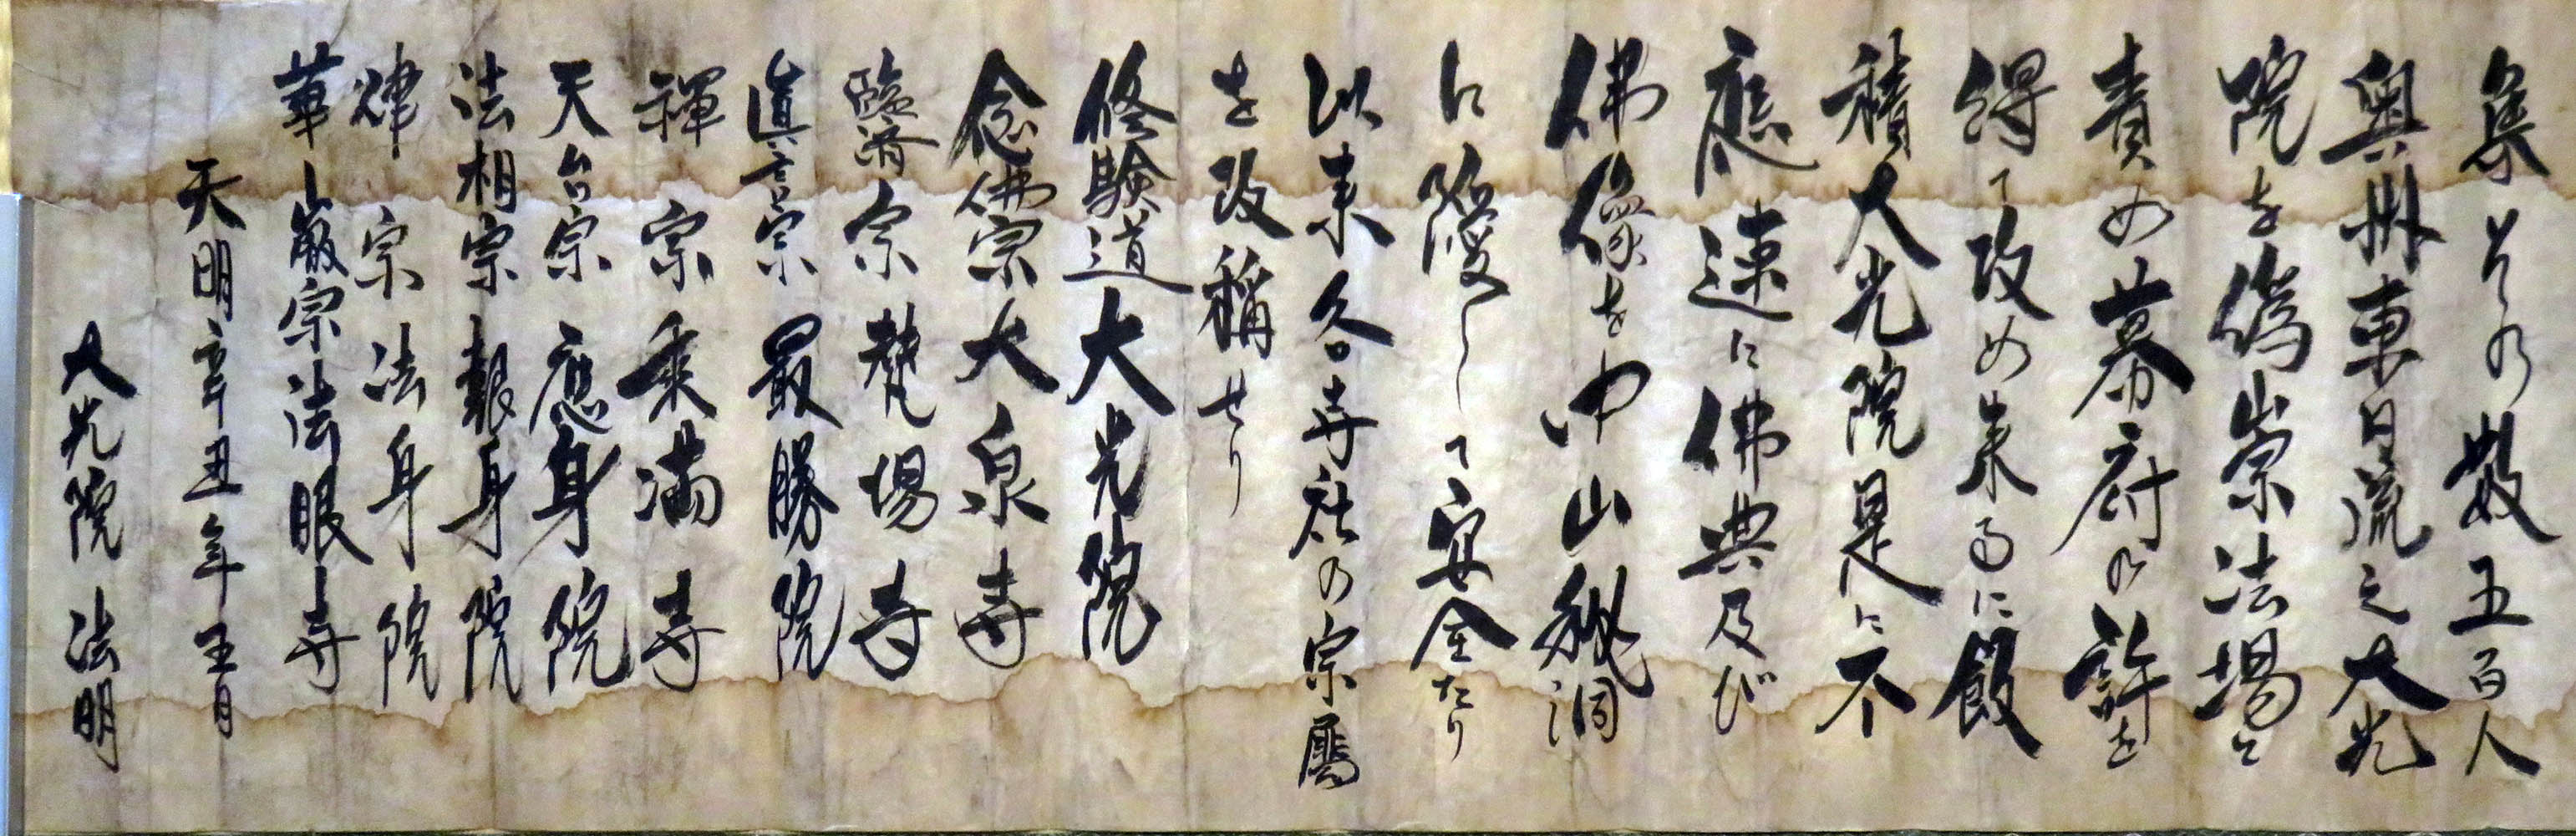 集その数五百人
奥州東日流之大光
院を偽宗法場と
責め幕府の許を
得て改め来るに飯
積大光院是に不
應速に佛典及び
佛像を中山秘洞
に隠して安全たり
以来各寺社の宗属
を改稱せり
修験道大光院
念佛宗大泉寺
臨済宗梵場寺
真言宗最勝院
禅宗乘満寺
天台宗應身院
法相宗報身院
律宗法身院
華厳宗法眼寺
天明辛丑年五月
大光院法明